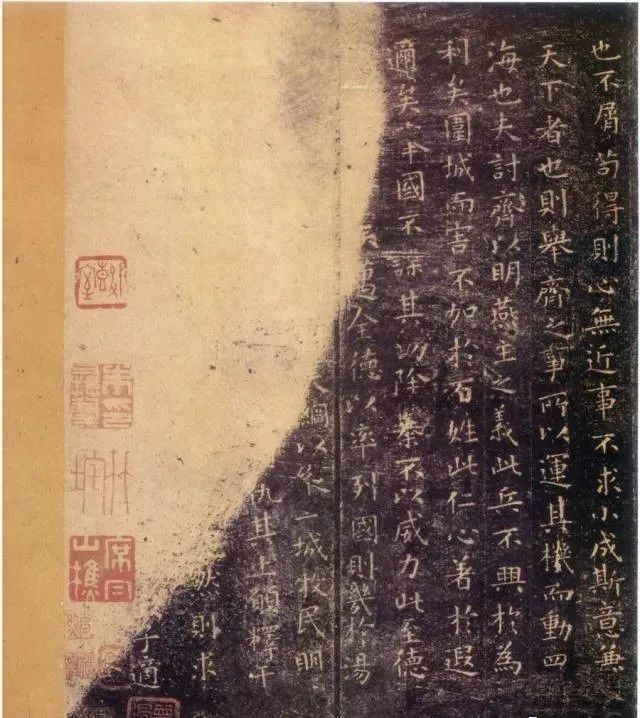 也不屑苟得則心無近事不求小成斯意兼
天下者也則舉齊之事所以運其機而動四
海也夫討齊以明燕主之義此兵不興於為
利矣圍城而害不加於百姓此仁心著於遐
邇矣舉國不謀其功除暴不以威力此至德
邁全德以率列國則幾於湯
綱以縱二城牧民明
仇其上願釋干
然則求
子適